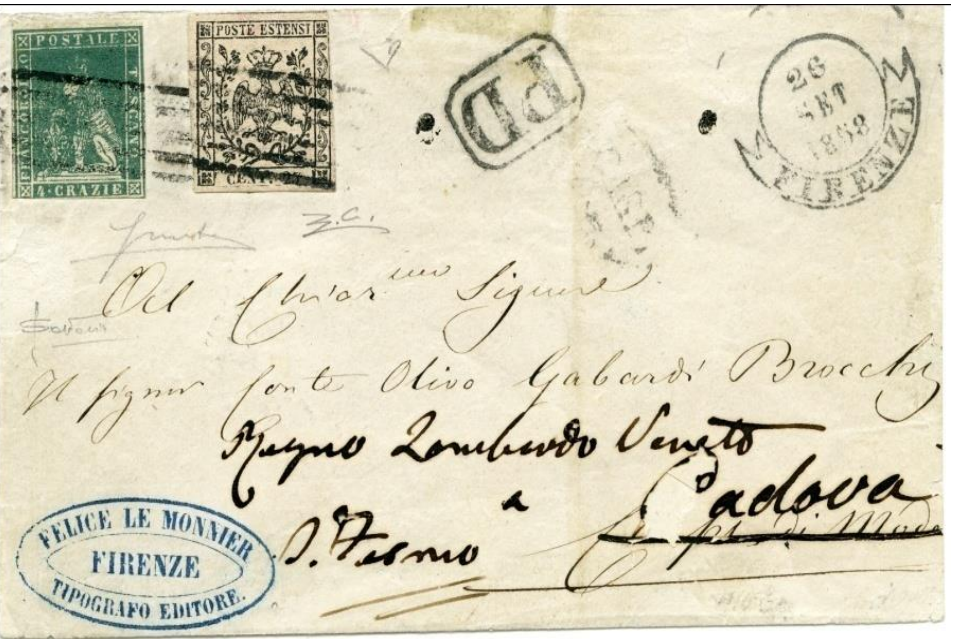 FRANCOBOLLO
POSTALE
TOSCANO
4·CRAZIE
POSTE ESTENSI
CENT.
PD
26
SET
1858
FIRENZE
Chiar mo Signore
Il Signor Conte Olivo Gabardi Brocchi
Regno Lombardo Veneto
a Padova
S. Fermo
FELICE LE MONNIER
FIRENZE
TIPOGRAFO EDITORE.